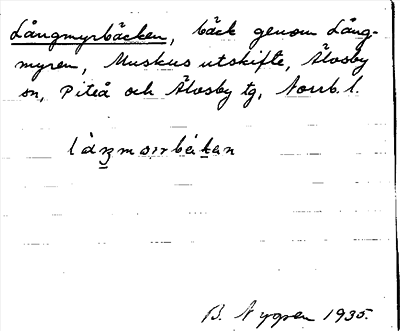 Långmyrbäcken, bäck genom Lång-
myren, Muskus utskifte, Älvsby
sn, Piteå och Älvsby tg, Norrb. l.
B. Nygren 1935.